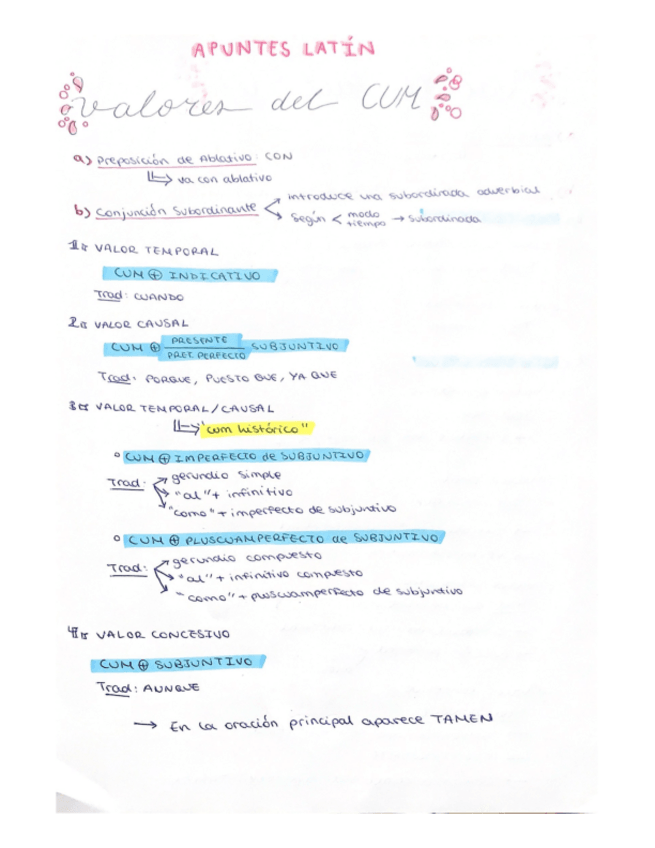 APUNTES LATÍN
Valores del CUM
a) Preposición de Ablativo: CON
↳ va con ablativo
b) Conjunción Subordinante < introduce una subordinada adverbial
Según < modo tiempo → subordinada
1º VALOR TEMPORAL
CUM ⊕ INDICATIVO
Trad: CUANDO
2º VALOR CAUSAL
CUM ⊕ PRESENTE / PRET. PERFECTO SUBJUNTIVO
Trad: PORQUE, PUESTO QUE, YA QUE
3º VALOR TEMPORAL/CAUSAL
↳ "cum histórico"
° CUM ⊕ IMPERFECTO de SUBJUNTIVO
Trad: gerundio simple
"al" + infinitivo
"como" + imperfecto de subjuntivo
° CUM ⊕ PLUSCUAMPERFECTO de SUBJUNTIVO
Trad: gerundio compuesto
"al" + infinitivo compuesto
"como" + pluscuamperfecto de subjuntivo
4º VALOR CONCESIVO
CUM ⊕ SUBJUNTIVO
Trad: AUNQUE
→ En la oración principal aparece TAMEN